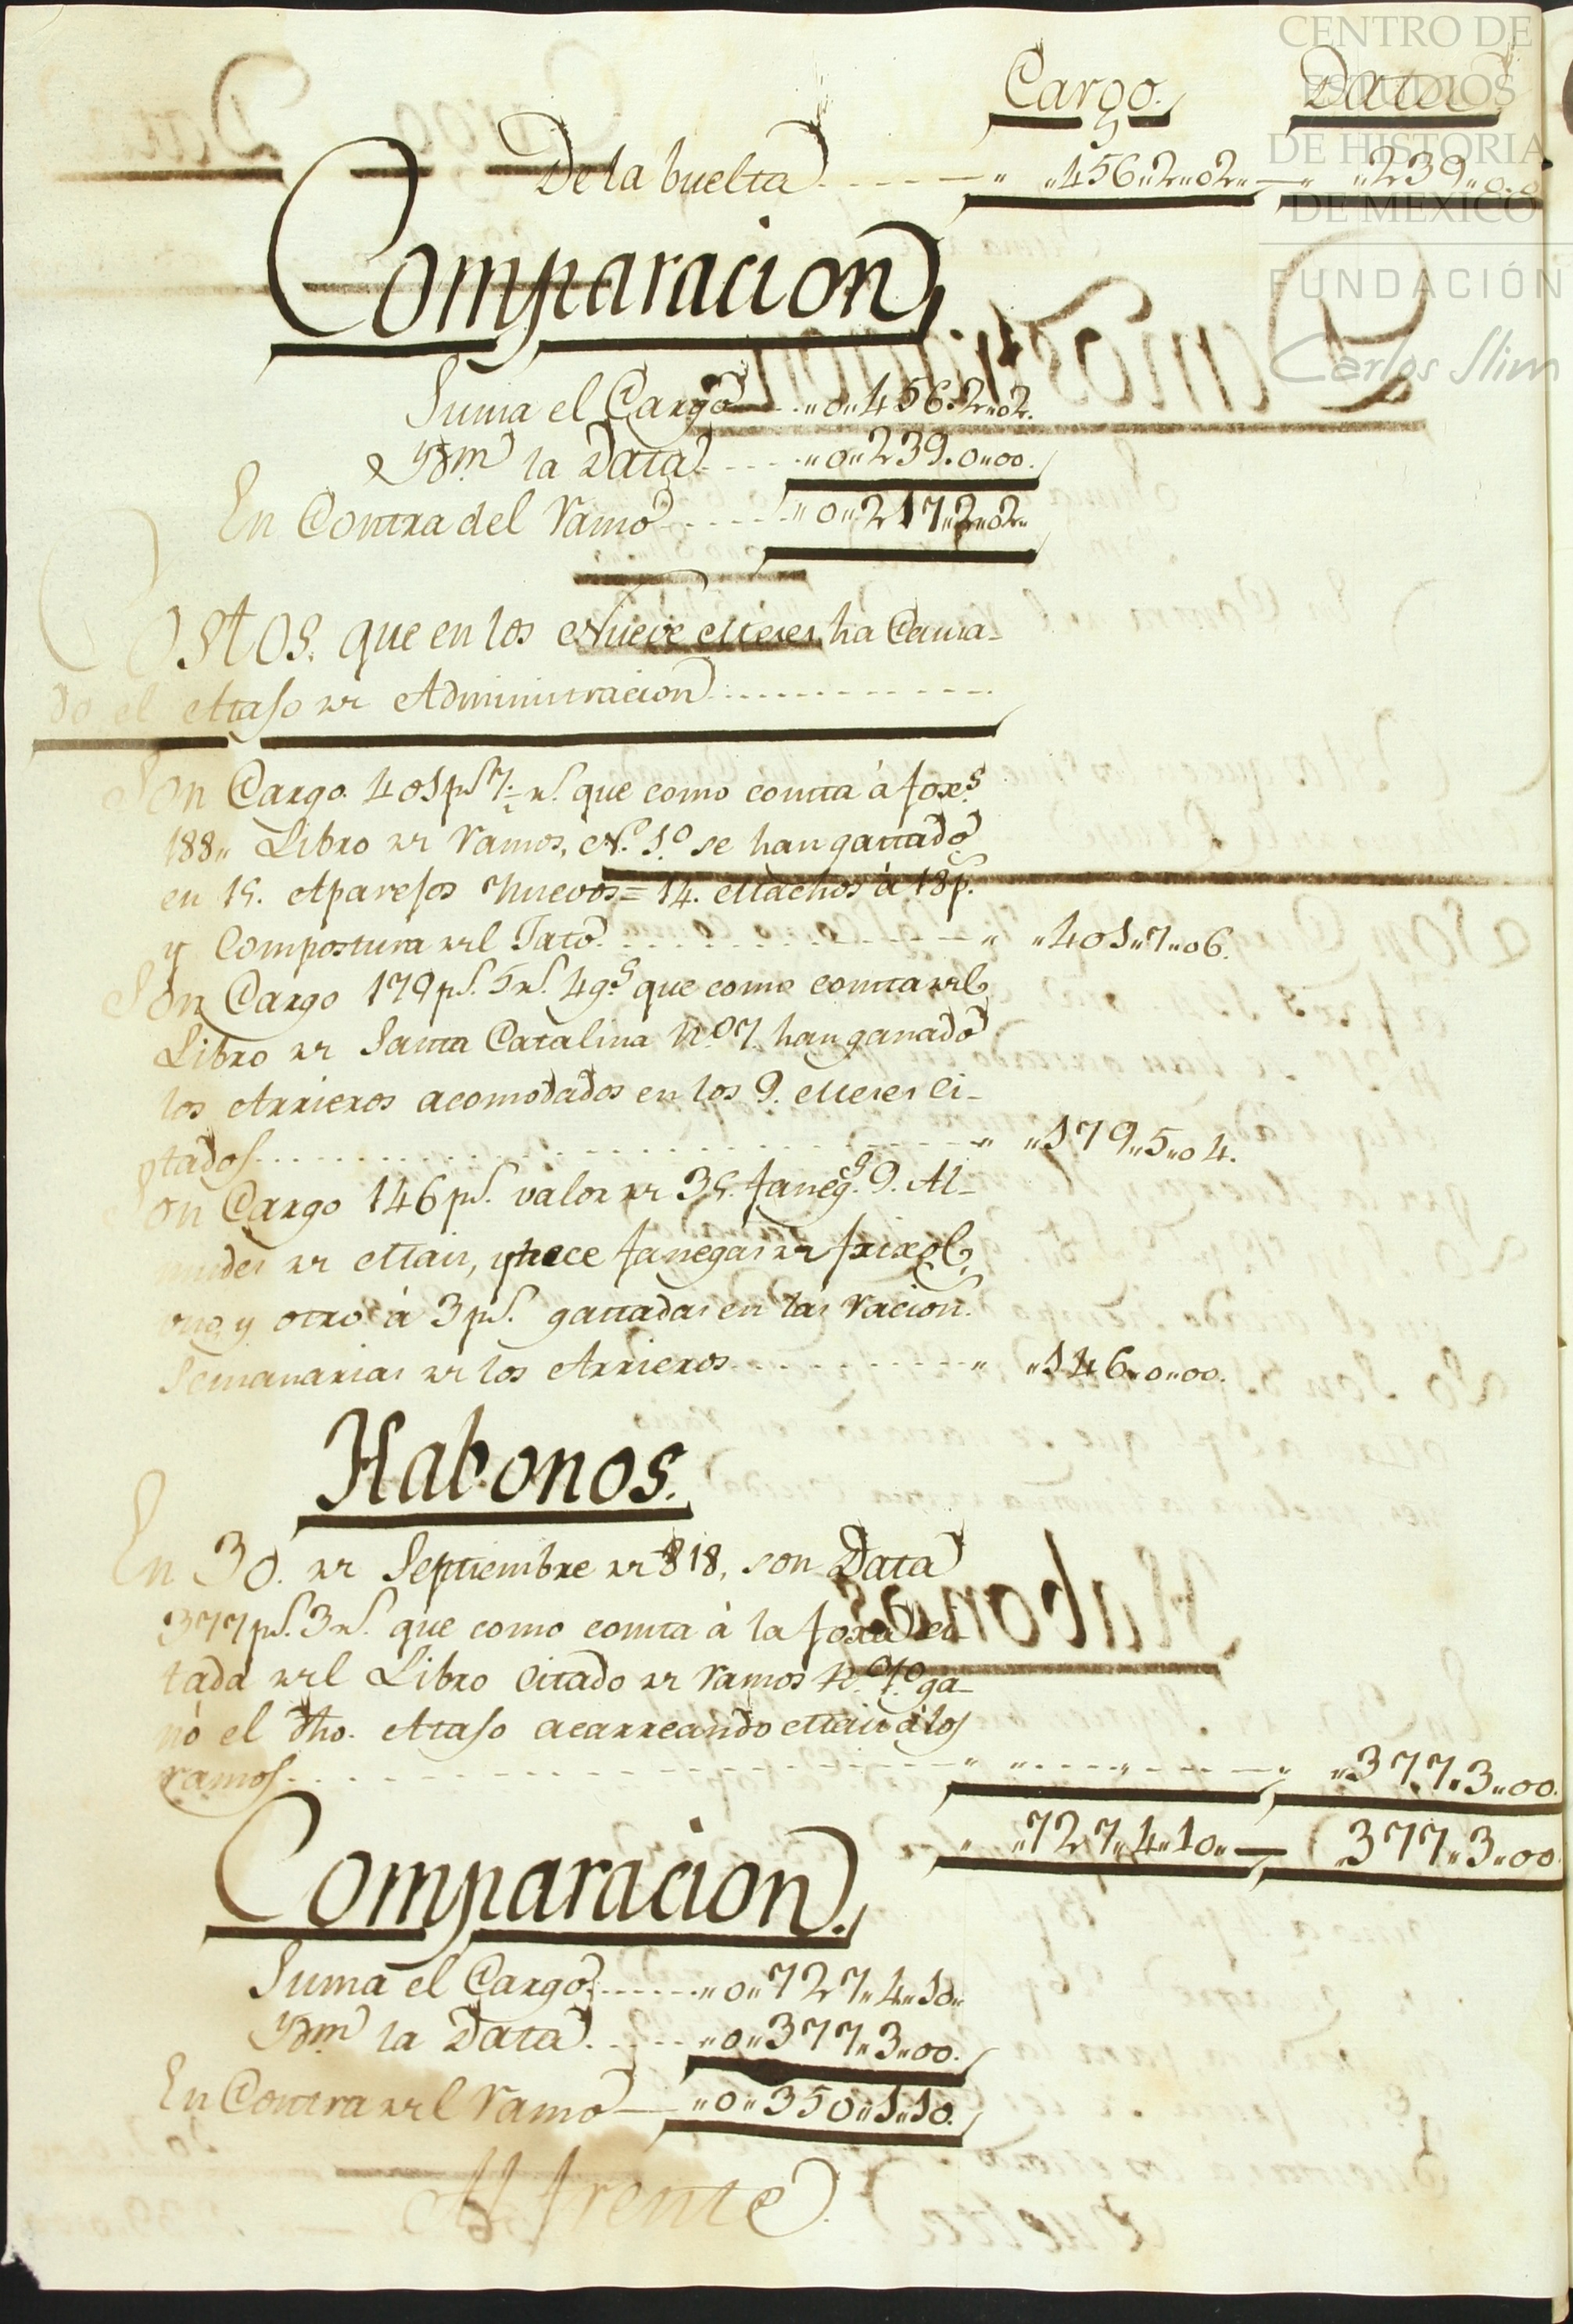 Cargo. Data
De la buelta „ „456„2„02„ „ „239„0.0
Comparacion
Suma el Cargo „0„456„2„02.
Ydm. la Data „0„239„0„00.
En Contra del ramo „0„217„2„02„
Costos. que en los Nueve Meses ha Causa-
do el Atajo de Administracion
Son Cargo. 401 ps. 7½ rs. que como consta à foxs.
188„ Libro de Ramos, N.º 1.º se han gastado
en 15. Aparejos nuevos = 14. Machos à 18 p.
y Compostura del Jato „ „401„7„06.
Son Cargo 179 ps. 5 rs. 4 gs. que como consta del
Libro de Santa Catalina N.º 7. han ganado
los Arrieros acomodados en los 9. Meses ci-
tados „ „179„5„04.
Son Cargo 146 ps. valor de 35. faneg.s 9. Al-
mudes de Mais, y trece fanegas de frixol,
uno, y otro à 3 ps. gastadas en las racion.s
Semanarias de los Arrieros „ „146„0„00.
Habonos.
En 30. de Septiembre de 818, son Data
377 ps. 3 rs. que como consta à la foxa ci-
tada del Libro citado de ramos N.º 1.º ga-
nó el dho. Atajo acarreando Mais á los
ramos „ „ „ „ „377„3„00.
„ „727„4„10„ 377„3„00
Comparacion.
Suma el Cargo „0„727„4„10„
Ydm. la Data „0„377„3„00.
En Contra del ramo „0„350„1„10.
Al frente.
CENTRO DE
ESTUDIOS
DE HISTORIA
DE MÉXICO
FUNDACIÓN
Carlos Slim